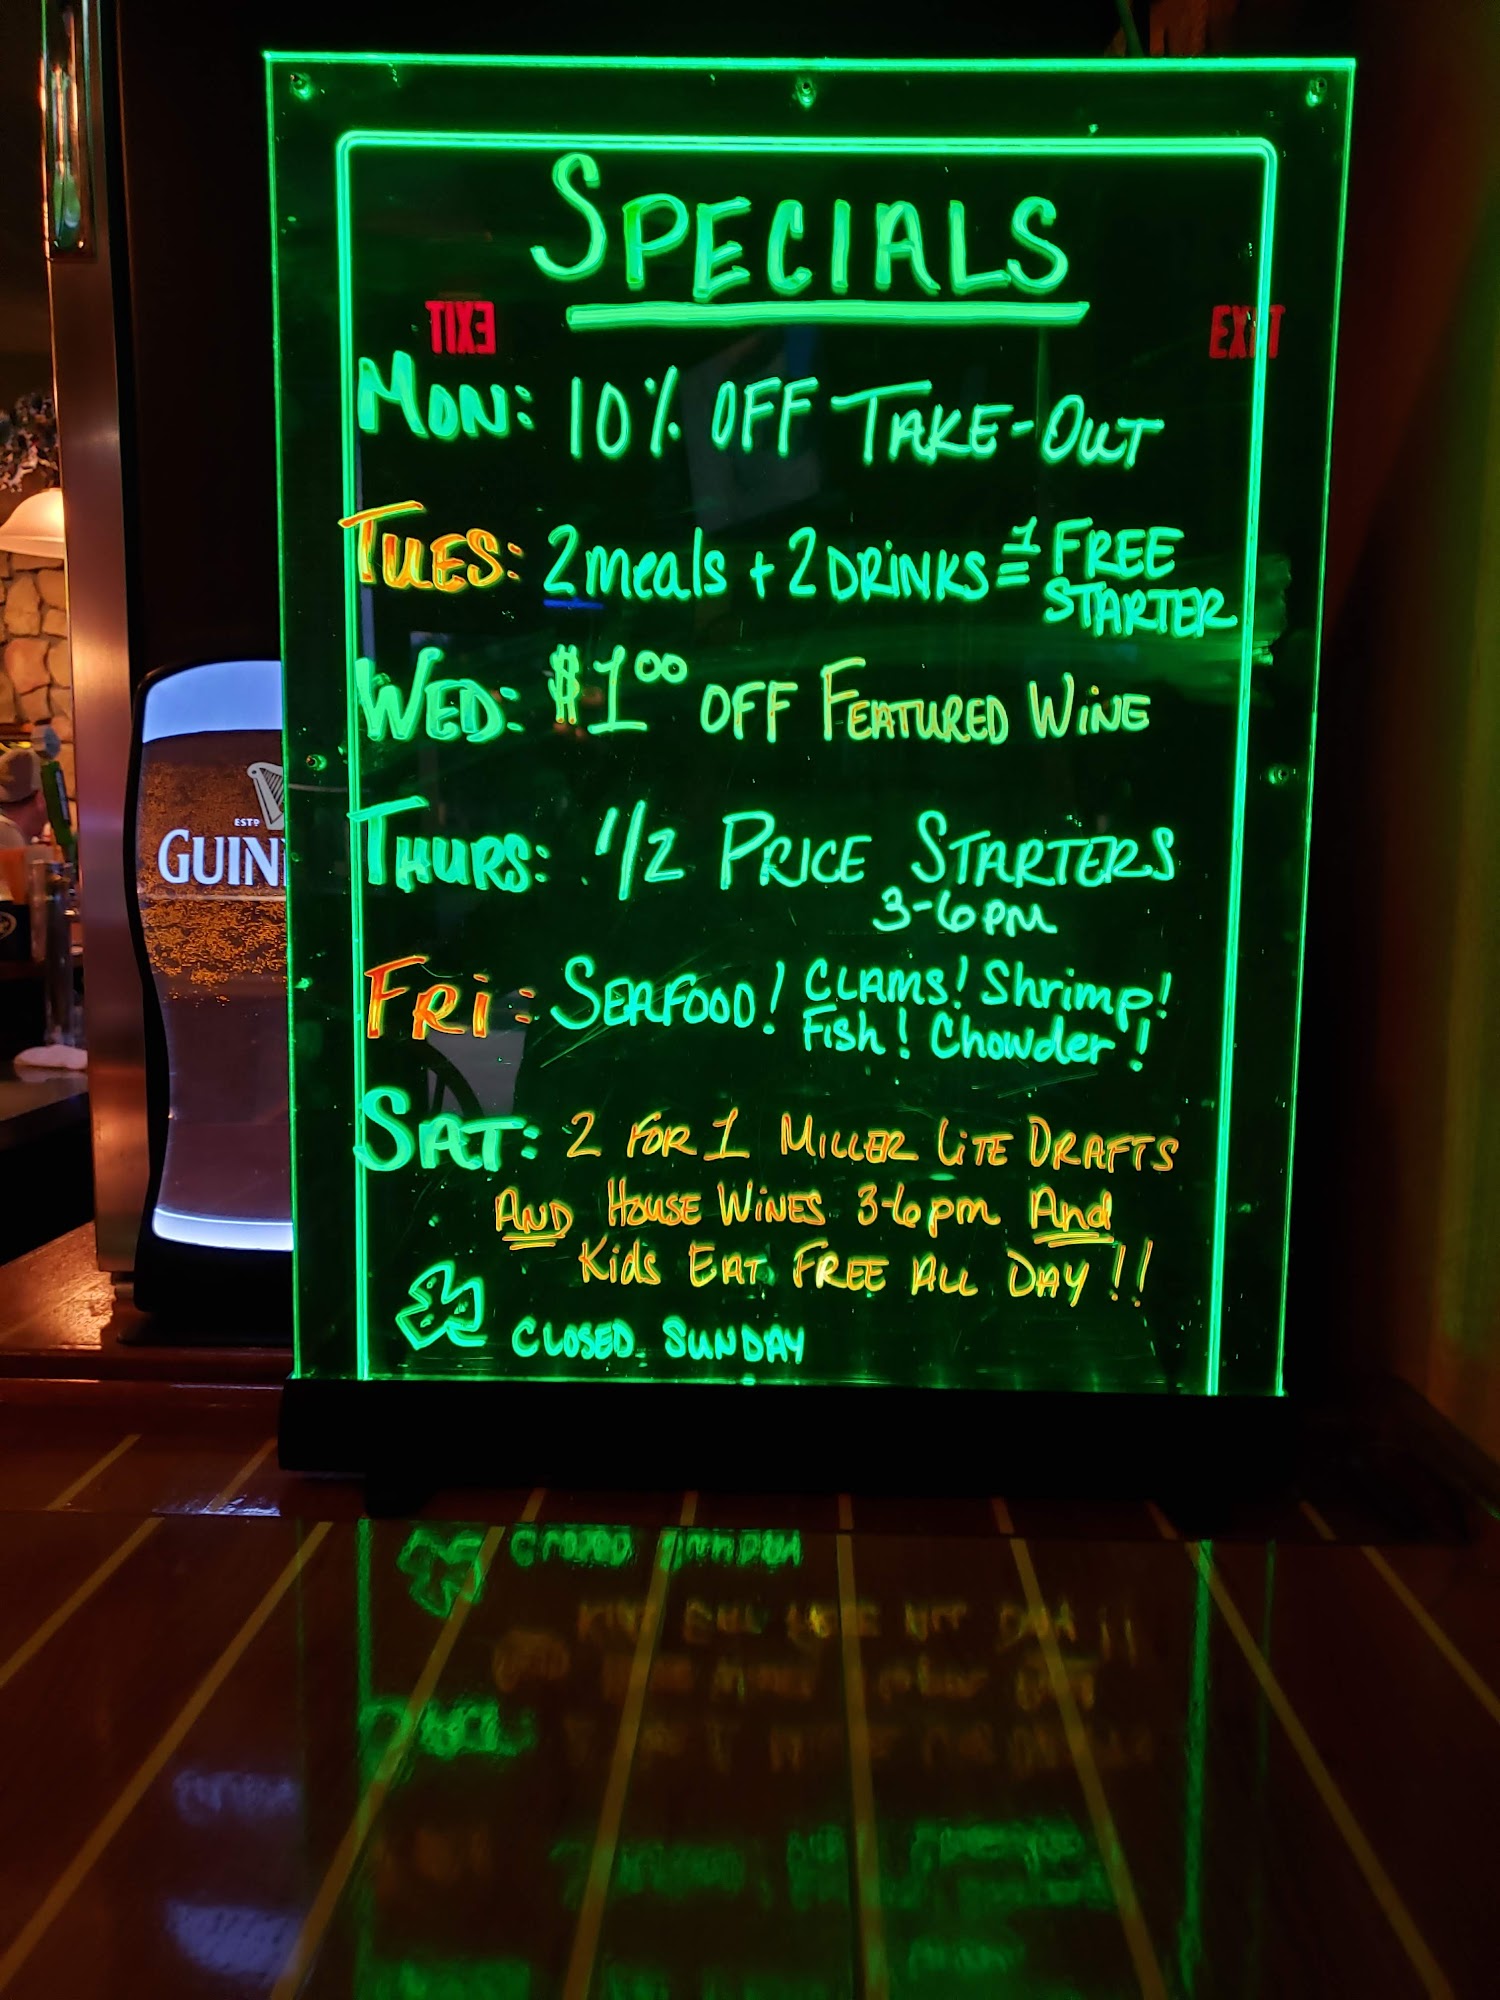 SPECIALS
EXIT EXIT
MON: 10% OFF TAKE-OUT
TUES: 2 meals + 2 DRINKS = 1 FREE
STARTER
WED: $1.00 OFF FEATURED WINE
THURS: 1/2 PRICE STARTERS
3-6PM
FRI: SEAFOOD! CLAMS! Shrimp!
Fish! Chowder!
SAT: 2 FOR 1 MILLER LITE DRAFTS
AND HOUSE WINES 3-6pm And
Kids EAT FREE ALL DAY!!
CLOSED SUNDAY
ESTD
GUIN